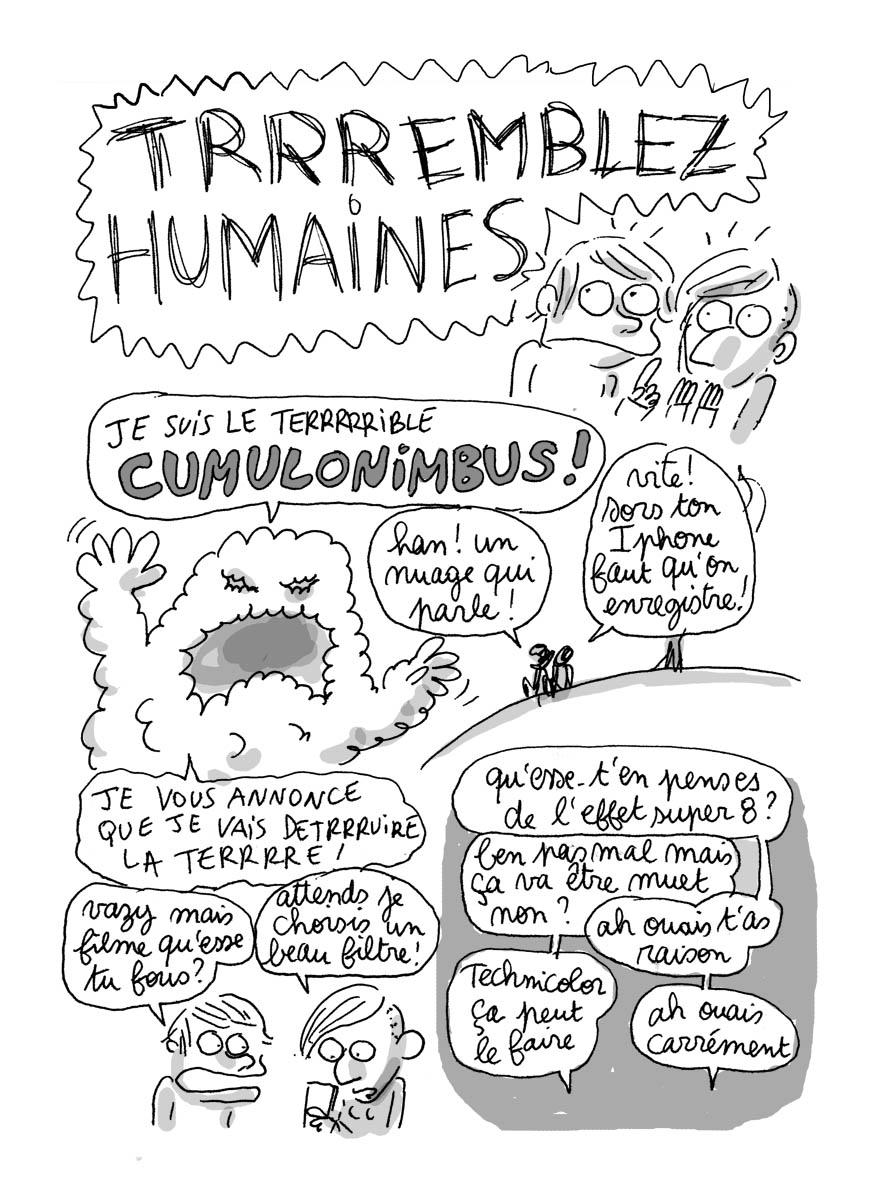 TRRREMBLEZ
HUMAINES
JE SUIS LE TERRRRRIBLE
CUMULONIMBUS!
han! un
nuage qui
parle!
vite!
sors ton
Iphone
faut qu'on
enregistre!
JE VOUS ANNONCE
QUE JE VAIS DETRRRUIRE
LA TERRRRE!
vazy mais
filme qu'esse
tu fous?
attends je
choisis un
beau filtre!
qu'esse-t'en penses
de l'effet super 8?
ben pas mal mais
ça va être muet
non?
ah ouais t'as
raison
Technicolor
ça peut
le faire
ah ouais
carrément